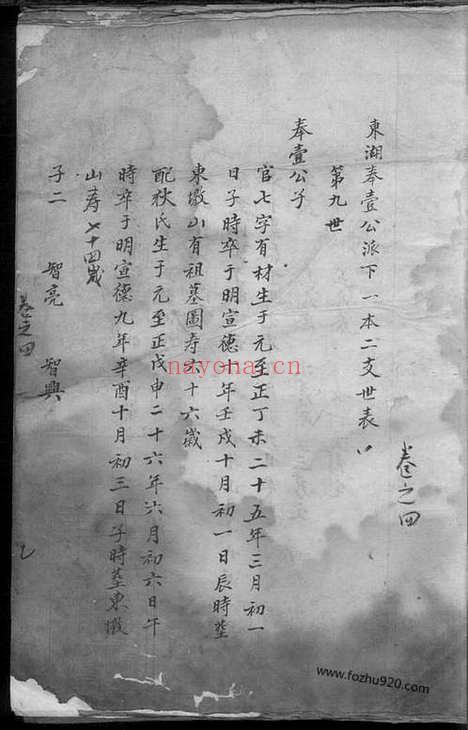 卷之四
東湖奉壹公派下一本二支世表
第九世
奉壹公子
官七字有材生于元至正丁未二十五年三月初一
日子時卒于明宣德十年壬戌十月初一日辰時塟
東墩山有祖墓圖寿六十六歲
配狄氏生于元至正戊申二十六年六月初六日午
時卒于明宣德九年辛酉十月初三日子時塟東墩
山寿七十四歲
子二 智亮 智興
卷之四
nayona.cn
www.fozhu920.com